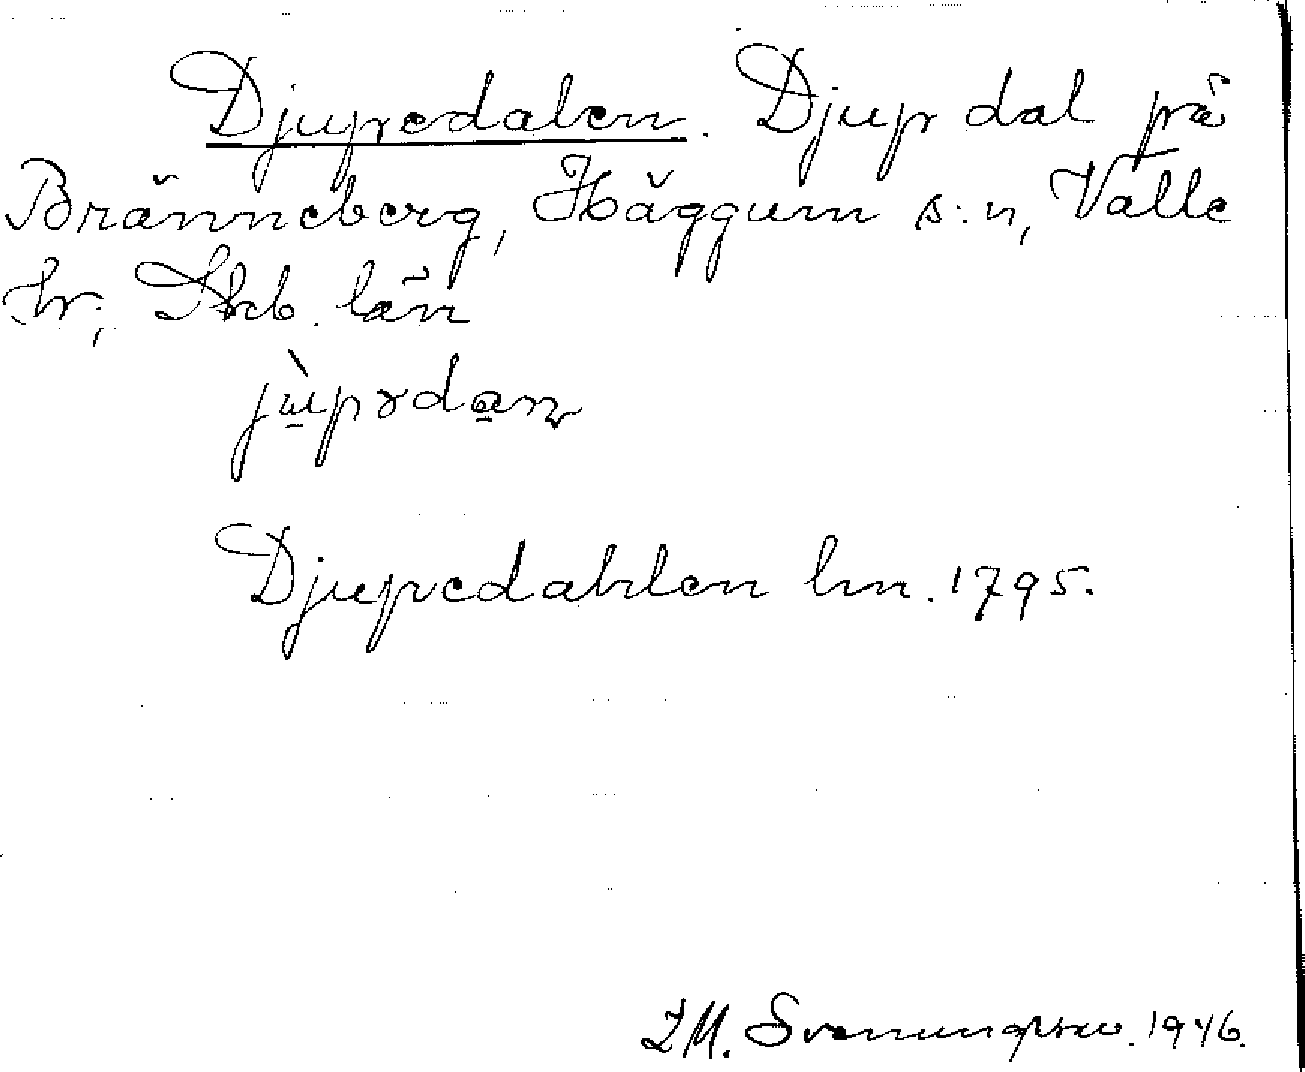 Djupedalen. Djup dal på
Bränneberg, Häggum s:n, Valle
hr; Skb. län
Djupedahlen lm. 1795.
Svenungsson. 1946.